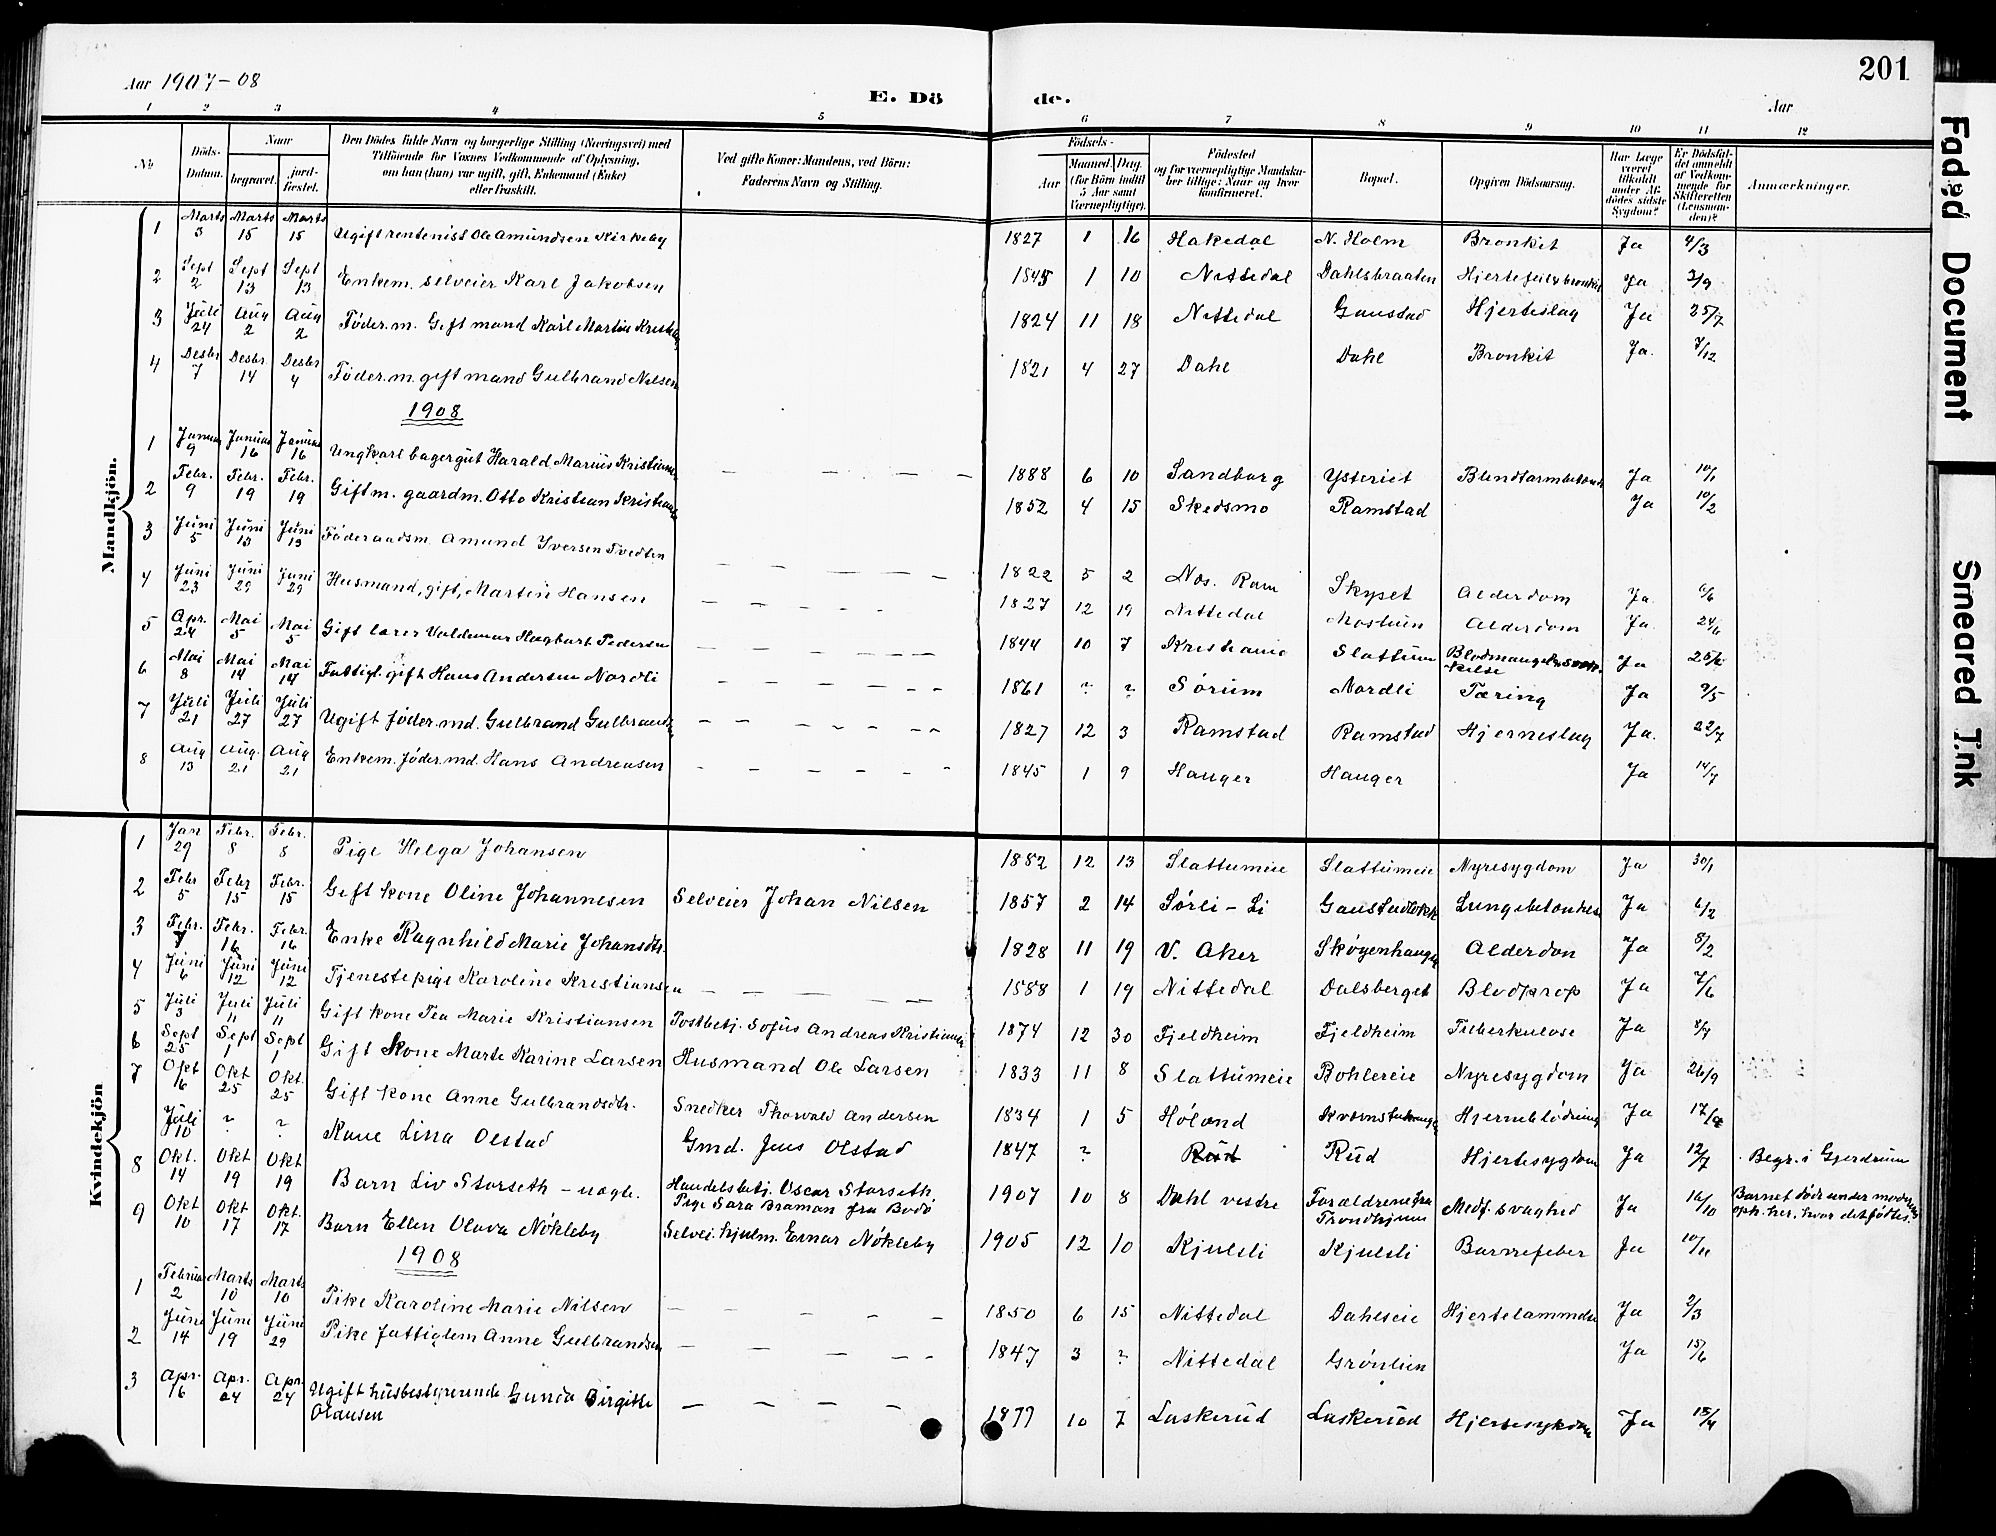 201
Aar 1907-08
E. Dö de.
Aar
1 2 3 4 5 6 7 8 9 10 11 12
No
Döds-Datum.
Naar
begravet.
jord-fæstet.
Den Dödes fulde Navn og borgerlige Stilling (Næringsvei) med
Tilföiende for Voxnes Vedkommende af Oplysning,
om han (hun) var ugift, gift, Enkemand (Enke)
eller fraskilt.
Ved gifte Koner: Mandens, ved Börn:
Faderens Navn og Stilling.
Födsels-
Aar
Maaned. Dag.
(for Börn indtil
5 Aar samt
Værnepligtige).
Födested
og for værnepligtige Mandska-
ber tillige: Naar og hvor
konfirmeret.
Bopæl.
Opgiven Dödsaarsag.
Har Læge
været
tilkaldt
under Af-
dödes sidste
Sygdom?
Er Dödsfal-
det anmeldt
af Vedkom-
mende for
Skifteretten
(Lensman-
den)?
Anmærkninger.
Mandkjön.
1 Marts 3 Marts 15 Marts 15 Ugift rentenist Ole Amundsen Kirkeby 1827 1 16 Hakedal N. Holm Bronkit Ja 4/3
2 Sept 2 Sept 13 Sept 13 Enkem. selveier Karl Jakobsen 1845 1 10 Nittedal Dahlsbraaten Ja 3/9
3 Juli 24 Aug 2 Aug 2 Föder.m. Gift mand Karl Martin 1824 11 18 Nittedal Gaustad Hjerteslag Ja 25/7
4 Desbr 7 Desbr. 14 Desbr 4 Föder.m. gift mand Gulbrand Nilsen 1821 4 27 Dahl Dahl Bronkit Ja. 7/12
1908
1 Januar 9 Januar 16 Januar 16 Ungkarl bagergut Harald Marius Kristiansen 1888 6 10 Sandborg Ysteriet Ja 10/1
2 Febr. 9 Febr. 19 Febr. 19 Gift m. gaardm. Otto Kristian 1852 4 15 Skedsmo Ramstad Ja 10/2
3 Juni 5 Juni 13 Juni 13 Föderaadsm. Amund Iversen Tvedten 1822 5 2 Nos. Rom Skyset Alderdom Ja. 6/6
4 Juni 23 Juni 29 Juni 29 Husmand, gift, Martin Hansen 1827 12 19 Nittedal Alderdom Ja. 24/6
5 Apr. 24 Mai 5 Mai 5 Gift lærer Valdemar Hagbart Pedersen 1844 10 7 Kristiania Slattum Ja
6 Mai 8 Mai 14 Mai 14 Fattigl. gift Hans Andersen Nordli 1861 ? ? Sörum Nordli Tæring Ja 9/5
7 Juli 21 Juli 27 Juli 27 Ugift föder.md. Gulbrand 1827 12 3 Ramstad Ramstad Hjerneslag Ja. 22/7
8 Aug 13 Aug. 21 Aug 21 Enkem. föder.md. Hans Andreasen 1845 1 9 Hauger Hauger Ja 14/7
Kvindekjön
1 Jan 29 Febr. 8 Febr. 8 Pige Helga Johansen 1882 12 13 Slattumeie Slattumeie Nyresygdom Ja 30/1
2 Febr 5 Febr 15 Febr. 15 Gift kone Oline Johannesen Selveier Johan Nilsen 1857 2 14 Sörli - Li Ja 6/2
3 Febr. 7 Febr. 16 Febr. 16 Enke Ragnhild Marie Johansdtr. 1828 11 19 V. Aker Skøyenhaugen Alderdon Ja 8/2
4 Juni 6 Juni 12 Juni 12 Tjenestepige Karoline Kristiansen 1888 1 19 Nittedal Dalsberget Blodprop Ja 7/6
5 Juli 3 Juli 11 Juli 11 Gift kone Tea Marie Kristiansen Postbetj. Sofus Andreas Kristiansen 1874 12 30 Fjeldheim Fjeldheim Tuberkulose Ja
6 Sept 25 Sept 1 Sept 1 Gift Kone Marte Karine Larsen Husmand Ole Larsen 1833 11 8 Slattumeie Bohlereie Nyresygdom Ja 26/9
7 Okt 16 Okt 25 Okt. 25 Gift kone Anne Gulbrandsdtr. Snedker Thorvald Andersen 1834 1 5 Höland Hjerneblödning Ja
Juli 10 ? ? Kone Lina Olstad Gmd. Jens Olstad 1847 ? Rud Rud Hjertesygdom Ja 12/7 Begr. i Gjerdrum
8 Okt. 14 Okt 19 Okt 19 Barn Liv Storseth - uægte. Handelsbetj. Oscar Storseth,
Pige Sara Braman fra Bodö 1907 10 8 Dahl vestre Forældrene fra
Trondhjem Medf. svaghed Ja 16/10 Barnet döde under moderens
oph. her, hvor det födtes.
9 Okt 10 Okt 17 Okt. 17 Barn Ellen Olava Nökleby Selvei. hjulm. Ernar Nökleby 1905 12 10 Kjulsli Kjulsli Barnefeber Ja 10/11
1908
1 Februar 2 Marts 10 Marts 10 Pike Karoline Marie Nilsen 1850 6 15 Nittedal Dahleeie Hjertelammelse Ja 2/3
2 Juni 14 Juni 19 Juni 29 Pike fattiglem Anne Gulbrandsen 1847 3 ? Nittedal Grönlien Ja 15/6
3 Apr. 16 Apr. 24 Apr. 24 Ugift husbestyrerinde Gunda Birgitte
Olausen 1877 10 7 Laskerud Laskerud Hjertesykdom Ja
Faded Document
Smeared Ink